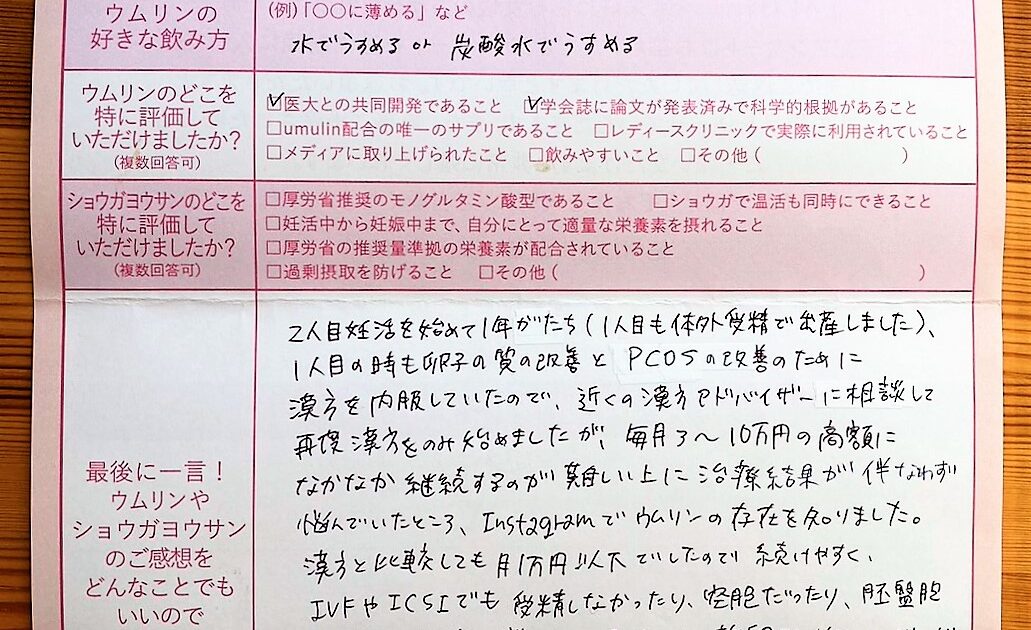 ウムリンの
好きな飲み方
(例)「〇〇に薄める」など
水でうすめる or 炭酸水でうすめる
ウムリンのどこを
特に評価して
いただけましたか?
(複数回答可)
☑医大との共同開発であること ☑学会誌に論文が発表済みで科学的根拠があること
□umulin配合の唯一のサプリであること □レディースクリニックで実際に利用されていること
□メディアに取り上げられたこと □飲みやすいこと □その他 ( )
ショウガヨウサンのどこを
特に評価して
いただけましたか?
(複数回答可)
□厚労省推奨のモノグルタミン酸型であること □ショウガで温活も同時にできること
□妊活中から妊娠中まで、自分にとって適量な栄養素を摂れること
□厚労省の推奨量準拠の栄養素が配合されていること
□過剰摂取を防げること □その他 ( )
最後に一言!
ウムリンや
ショウガヨウサン
のご感想を
どんなことでも
いいので
2人目妊活を始めて1年がたち(1人目も体外受精で出産しました)、
1人目の時も卵子の質の改善と PCOSの改善のために
漢方を内服していたので、近くの漢方アドバイザーに相談して
再度漢方をのみ始めましたが、毎月7〜10万円の高額に
なかなか継続するのが難しい上に治療結果が伴なわず
悩んでいたところ、Instagramでウムリンの存在を知りました。
漢方と比較しても月1万円以下でしたので続けやすく、
IVFやICSIでも受精しなかったり、空胞だったり、胚盤胞